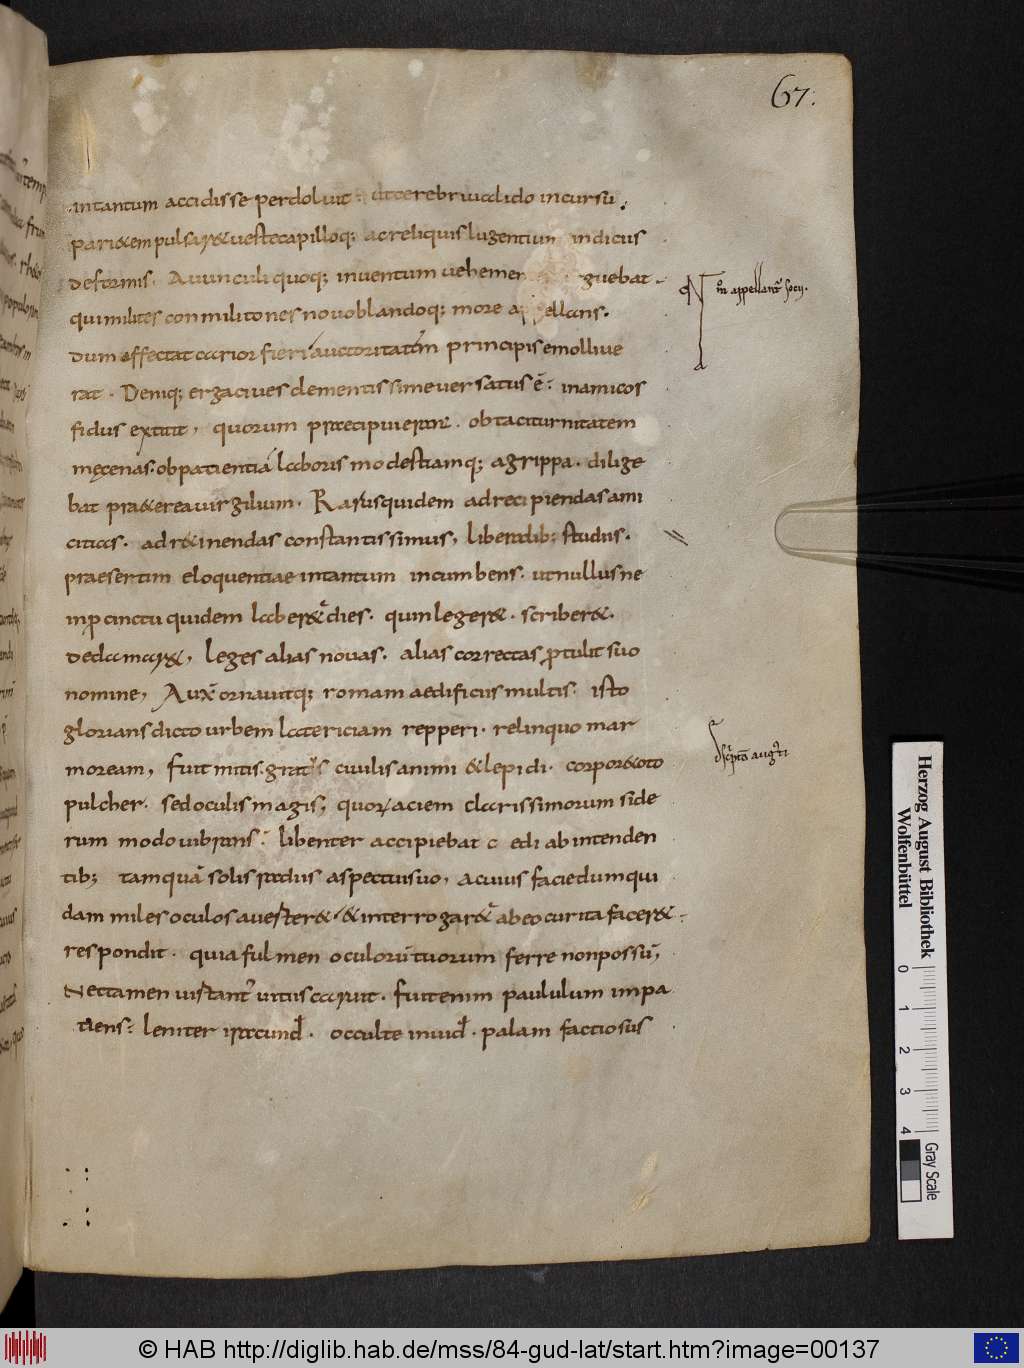 67.
intantum accidisse perdoluit ut cerebri ualido incursu.
pari&em pulsar& ueste capilloq; ac reliquis lugentium indiciis
deformis. Auunculi quoq; inuentum uehemen arguebat
qui milites conmilitones nouo blandoq; more appellans.
dum effectat carior fieri auctoritatem principis emolliue
rat. Deniq; erga ciues clementissime uersatus ē: in amicos
fidus extitit, quorum praecipui erant. ob taciturnitatem
mecenas. ob patientiā laboris modestiamq; agrippa. dilige
bat pra&erea uirgilium. Rarus quidem ad recipiendas ami
citias. ad r&inendas constantissimus, liberalib; studiis.
praesertim eloquentiae in tantum incumbens. ut nullus ne
in p cinctu quidem laber&ur dies. quin leger&. scriber&.
declamar&, leges alias nouas. alias correctas ptulit suo
nomine, Aux ornauitq; romam aedificiis multis. isto
glorians dicto urbem latericiam repperi. relinquo mar
moream, fuit mitis. gratus ciuilis animi & lepidi. corpor& oto
pulcher. sed oculis magis, quorum aciem clarissimorum side
rum modo uibrans. libenter accipiebat c edi ab intenden
tib; tamquā solis radiis aspectui suo, a cuius facie dum qui
dam miles oculos auerter& & interrogar&ur ab eo cur ita facer&
respondit. quia fulmen oculorū tuorum ferre non possū,
Nec tamen uir tantus uitiis caruit. fuit enim paululum inpa
tiens: leniter iracund'. occulte inuid'. palam factiosus
N appellant' socij.
dscriptō aug'ti
Herzog August Bibliothek
Wolfenbüttel
0 1 2 3 4
Gray Scale
© HAB http://diglib.hab.de/mss/84-gud-lat/start.htm?image=00137